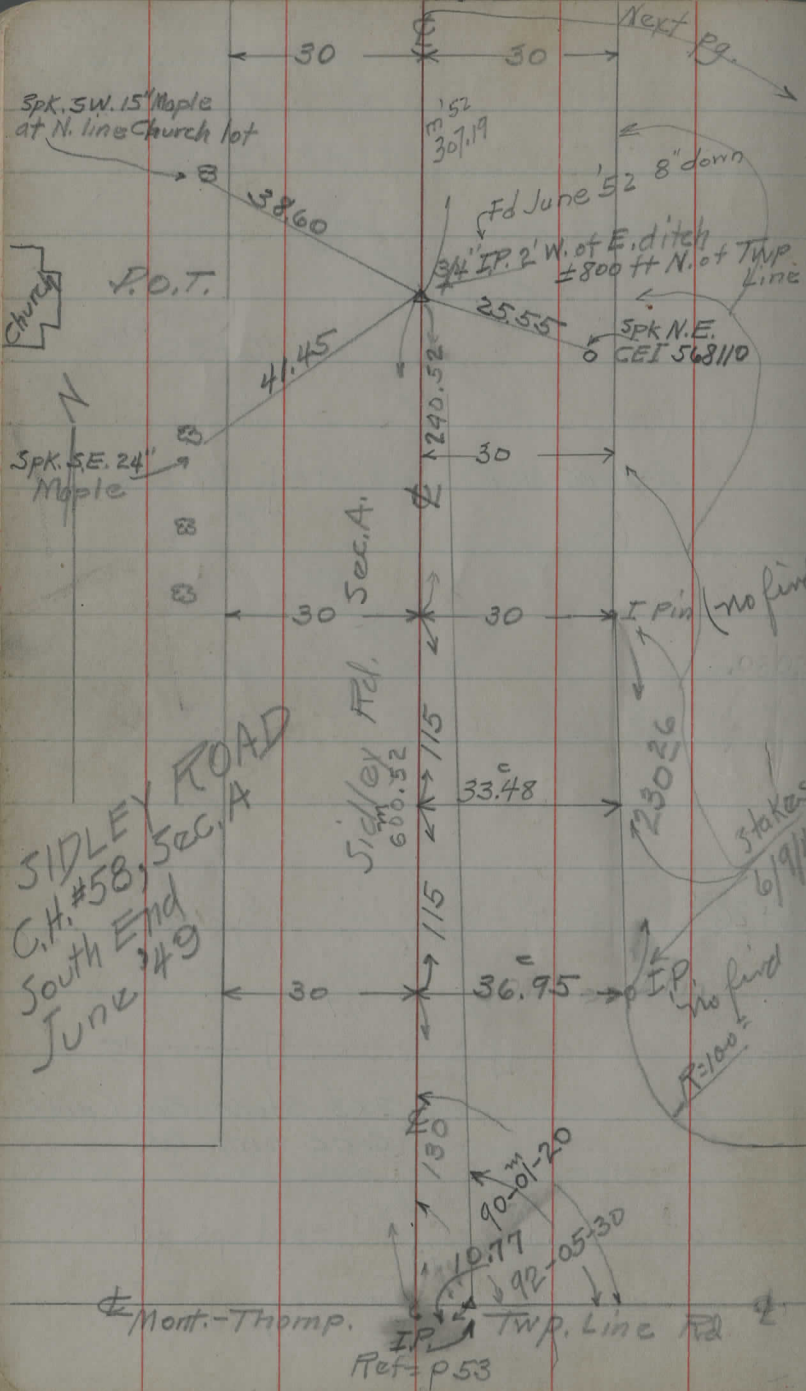 Next pg.
30
30
℄
m '52
307.19
Spk. S.W. 15" Maple
at N. line Church lot
38.60
Fd June '52 8" down
3/4" I.P. 2' W. of E. ditch
±800 ft N. of Twp
Line
Church
P.O.T.
25.55
Spk N.E.
CEI 568110
41.45
240.52
N
Spk. S.E. 24"
Maple
30
℄
Sec. A.
30
30
I Pin
(no find
Sidley Rd.
m
600.52
115
c
33.48
230.26
Stakes
6/9/
SIDLEY ROAD
C.H. #58, Sec. A
South End
June '49
115
30
c
36.95
I.P.
no find
R=100±
130
m
90-01-20
10.77
92-05-30
℄
Mont.-Thomp.
I.P.
Twp. Line Rd
℄
Ref= p 53